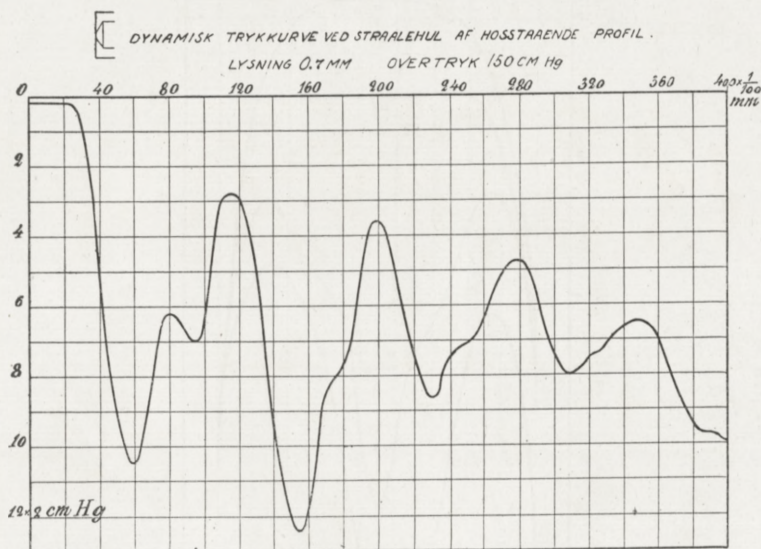 DYNAMISK TRYKKURVE VED STRAALEHUL AF HOSSTAAENDE PROFIL.
LYSNING 0.7 MM OVERTRYK 150 CM Hg
0 40 80 120 160 200 240 280 320 360 400 × 1/100 mm
2
4
6
8
10
12 × 2 cm Hg